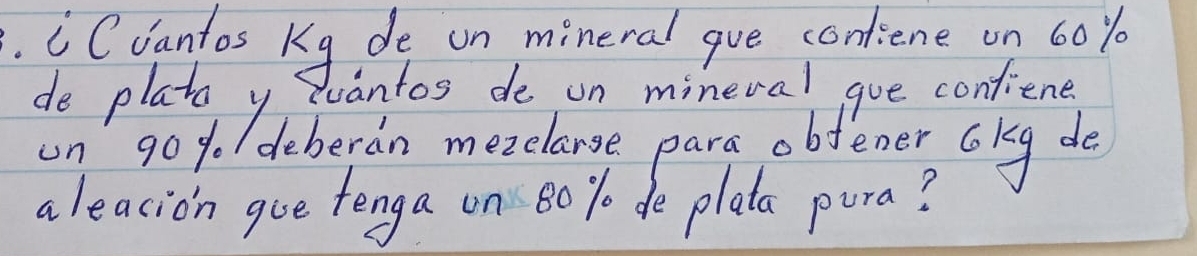 3. ¿Cuántos Kg de un mineral que contiene un 60%
de plata y cuántos de un mineral que contiene
un 90% deberán mezclarse para obtener 6 kg de
aleación que tenga un 80% de plata pura?